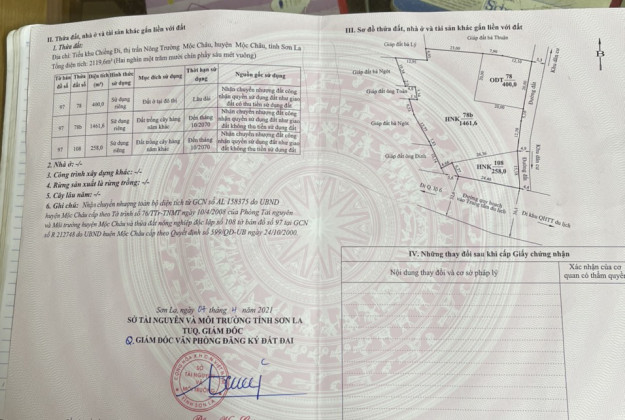 II. Thửa đất, nhà ở và tài sản khác gắn liền với đất
1. Thửa đất:
Địa chỉ: Tiểu khu Chiềng Đi, thị trấn Nông Trường Mộc Châu, huyện Mộc Châu, tỉnh Sơn La
Tổng diện tích: 2119,6m² (Hai nghìn một trăm mười chín phẩy sáu mét vuông)
Tờ bản đồ số Thửa đất số Diện tích (m²) Hình thức sử dụng Mục đích sử dụng Thời hạn sử dụng Nguồn gốc sử dụng
97 78 400,0 Sử dụng riêng Đất ở tại đô thị Lâu dài Nhận chuyển nhượng đất công nhận quyền sử dụng đất như giao đất có thu tiền sử dụng đất
97 78b 1461,6 Sử dụng riêng Đất trồng cây hàng năm khác Đến tháng 10/2070 Nhận chuyển nhượng đất công nhận quyền sử dụng đất như giao đất không thu tiền sử dụng đất
97 108 258,0 Sử dụng riêng Đất trồng cây hàng năm khác Đến tháng 10/2070 Nhận chuyển nhượng đất công nhận quyền sử dụng đất như giao đất không thu tiền sử dụng đất
2. Nhà ở: -/-
3. Công trình xây dựng khác: -/-
4. Rừng sản xuất là rừng trồng: -/-
5. Cây lâu năm: -/-
6. Ghi chú: Nhận chuyển nhượng toàn bộ diện tích từ GCN số AL 158375 do UBND
huyện Mộc Châu cấp theo Tờ trình số 76/TTr-TNMT ngày 10/4/2008 của Phòng Tài nguyên
và Môi trường huyện Mộc Châu và thửa đất nông nghiệp độc lập số 108 tờ bản đồ số 97 tại GCN
số R 212748 do UBND huện Mộc Châu cấp theo Quyết định số 599/QĐ-UB ngày 24/10/2000.
Sơn La, ngày 04 tháng 11 năm 2021
SỞ TÀI NGUYÊN VÀ MÔI TRƯỜNG TỈNH SƠN LA
TUQ. GIÁM ĐỐC
GIÁM ĐỐC VĂN PHÒNG ĐĂNG KÝ ĐẤT ĐAI
III. Sơ đồ thửa đất, nhà ở và tài sản khác gắn liền với đất
Giáp đất bà Thuận
Giáp đất bà Lý
Giáp đất bà Ngát
Giáp đất ông Toàn
ODT 78
400,0
HNK 78b
1461,6
Giáp đất bà Ngát
Giáp đất ông Định
HNK 108
258,0
Đường đất
Khu dân cư
Đường đất
Khu dân cư
Đi Q. lộ 6
Đường quy hoạch
Đi khu QHTT du lịch
B
IV. Những thay đổi sau khi cấp Giấy chứng nhận
Nội dung thay đổi và cơ sở pháp lý
Xác nhận của cơ
quan có thẩm quyền